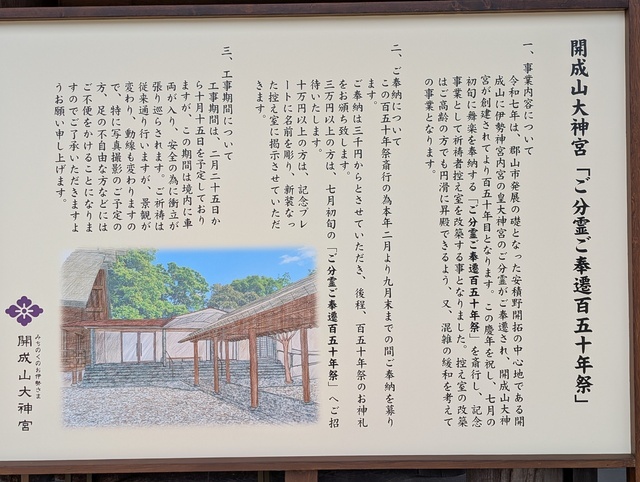 開成山大神宮「ご分霊ご奉遷百五十年祭」
一、事業内容について
令和七年は、郡山市発展の礎となった安積野開拓の中心地である開
成山に伊勢神宮内宮の皇大神宮のご分霊がご奉遷され、開成山大神
宮が創建されてより百五十年目となります。この慶年を祝し、七月の
初旬に舞楽を奉納する「ご分霊ご奉遷百五十年祭」を斎行し、記念
事業として祈祷者控え室を改築する事となりました。控え室の改築
はご高齢の方でも円滑に昇殿できるよう、又、混雑の緩和を考えて
の事業となります。
二、ご奉納について
この百五十年祭斎行の為本年二月より九月末までの間ご奉納を募り
ます。
ご奉納は三千円からとさせていただき、後程、百五十年祭のお神札
をお頒ち致します。
三万円以上の方は、七月初旬の「ご分霊ご奉遷百五十年祭」へご招
待いたします。
十万円以上の方は、記念プレ
ートに名前を彫り、新装なっ
た控え室に掲示させていただ
きます。
三、工事期間について
工事期間は、二月二十五日か
ら十月十五日を予定しており
ますが、この期間は境内に車
両が入り、安全の為に衝立が
張り巡らされます。ご祈祷は
従来通り行いますが、景観が
変わり、動線も変わりますの
で、特に写真撮影のご予定の
方、足の不自由な方などには
ご不便をかけることになりま
すのでご了承いただきますよ
うお願い申し上げます。
みちのくのお伊勢さま
開成山大神宮